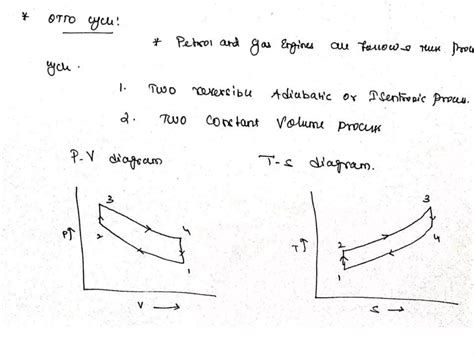 * OTTO cycle:
* Petrol and gas Engines are follows this
cycle.
1. Two reversible Adiabatic or Isentropic process.
2. Two constant Volume process
P-V diagram T-S diagram.
3 3
4 4
P↑ 2 T↑ 2
1 1
V → S →